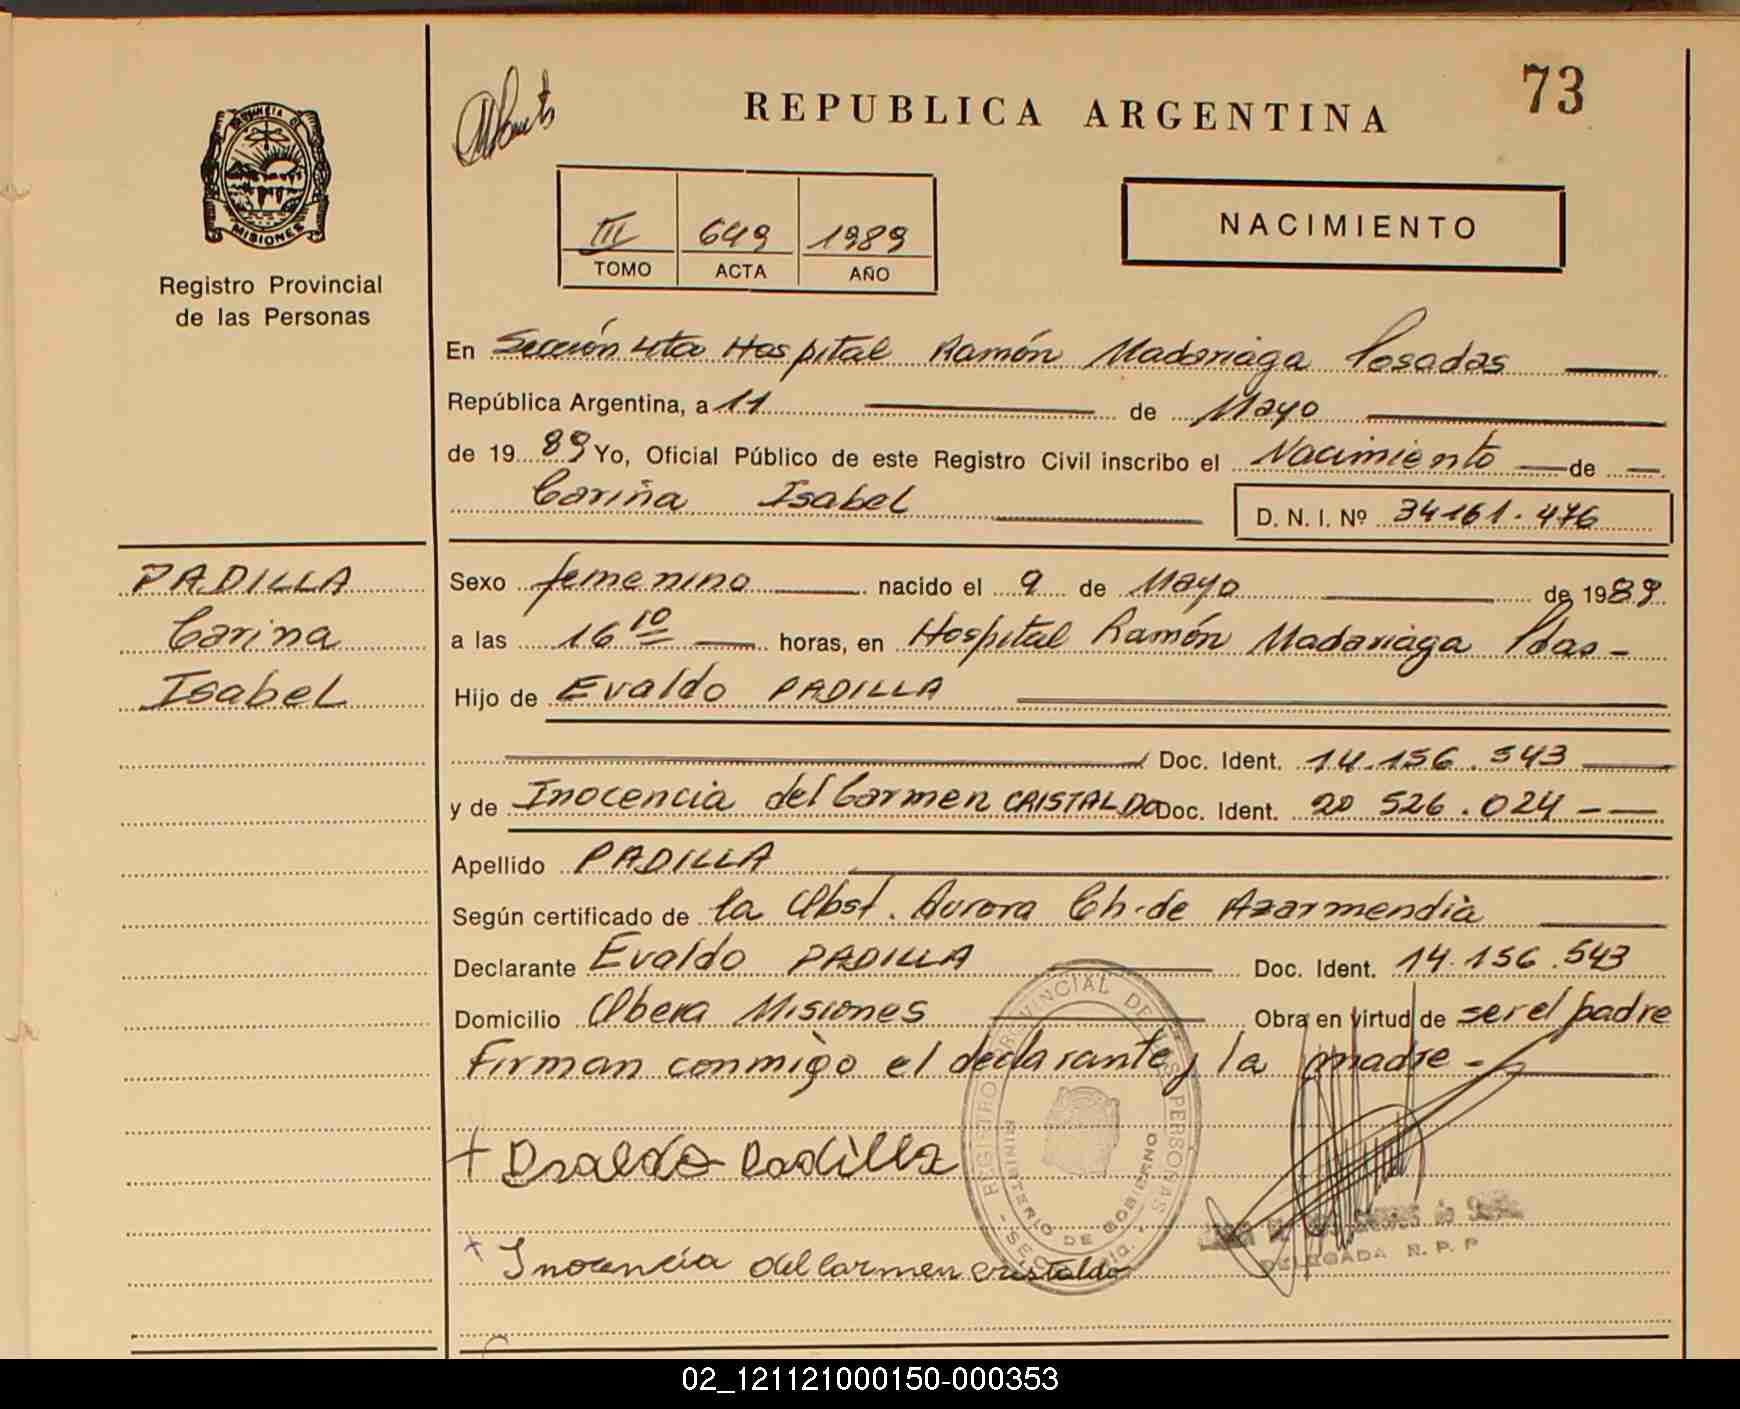 73
REPUBLICA ARGENTINA
PROVINCIA DE
MISIONES
Registro Provincial
de las Personas
III 649 1989
TOMO ACTA AÑO
NACIMIENTO
En Sección 4ta Hospital Ramón Madariaga Posadas
República Argentina, a 11 de Mayo
de 1989 Yo, Oficial Público de este Registro Civil inscribo el Nacimiento de
Cariña Isabel
D. N. I. Nº 34161.476
PADILLA
Carina
Isabel
Sexo femenino nacido el 9 de Mayo de 1989
a las 16 10 horas, en Hospital Ramón Madariaga Pdas -
Hijo de Evaldo PADILLA
Doc. Ident. 14.156.543
y de Inocencia del Carmen CRISTALDO Doc. Ident. 20 526.024
Apellido PADILLA
Según certificado de la Obst. Aurora Ch. de Azarmendia
Declarante Evaldo PADILLA Doc. Ident. 14.156.543
Domicilio Obera Misiones Obra en virtud de ser el padre
Firman conmigo el declarante y la madre -
REGISTRO PROVINCIAL DE LAS PERSONAS
MINISTERIO DE GOBIERNO
+ Evaldo Padilla
+ Inocencia del Carmen Cristaldo
DELEGADA R. P. P
02_121121000150-000353